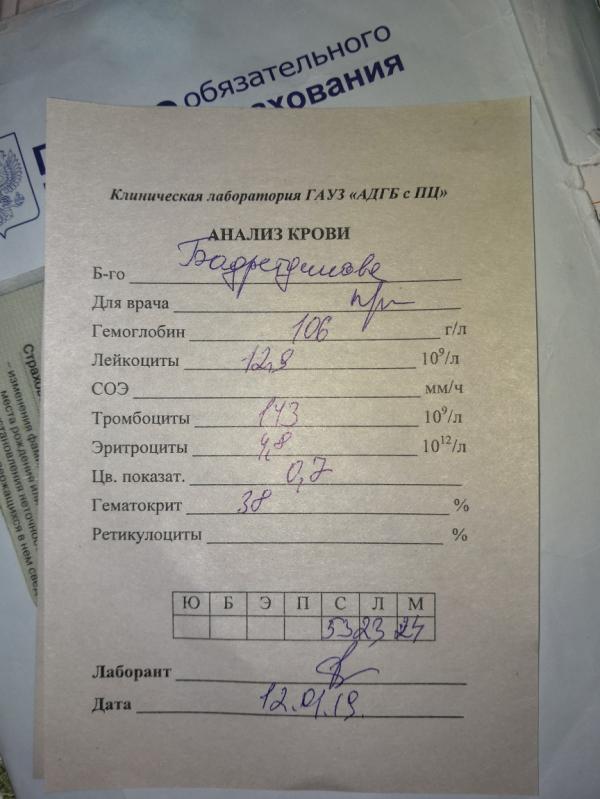 обязательного
хования
Клиническая лаборатория ГАУЗ «АДГБ с ПЦ»
АНАЛИЗ КРОВИ
Б-го Бадретдинова
Для врача
Гемоглобин 106 г/л
Лейкоциты 12,9 10⁹/л
СОЭ мм/ч
Тромбоциты 143 10⁹/л
Эритроциты 4,8 10¹²/л
Цв. показат. 0,7
Гематокрит 38 %
Ретикулоциты %
Ю Б Э П С Л М
53 23 24
Лаборант
Дата 12.01.19.
Страхов
- изменения фам
места рождения или
установления неточнос
держащихся в нем свед